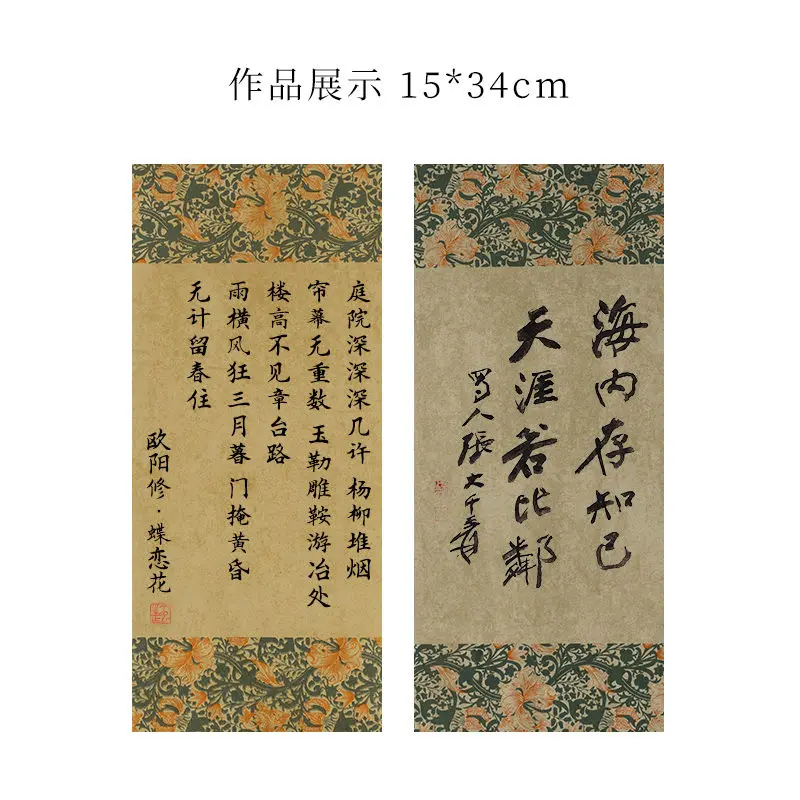 作品展示 15*34cm
庭院深深深几许 杨柳堆烟
帘幕无重数 玉勒雕鞍游冶处
楼高不见章台路
雨横风狂三月暮 门掩黄昏
无计留春住
欧阳修·蝶恋花
海内存知己
天涯若比邻
蜀人張大千爰